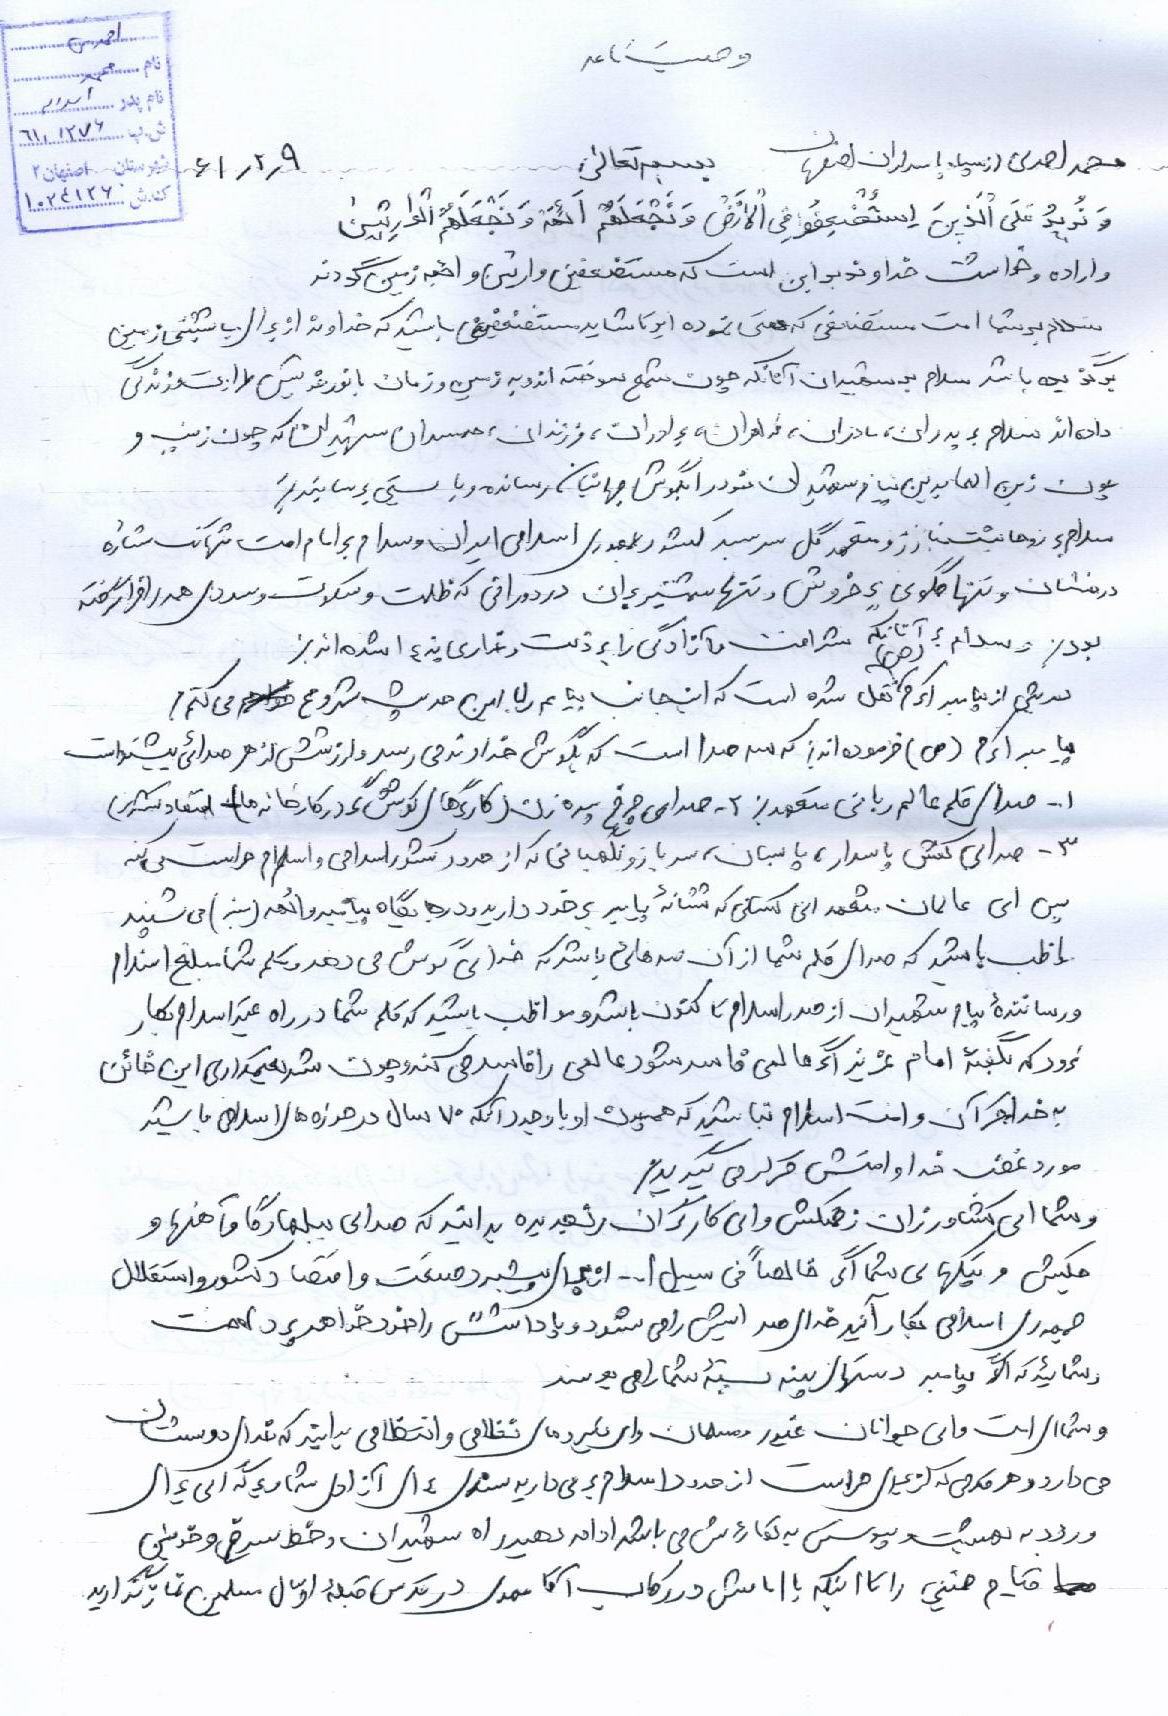 وصیتنامه
احمدی
نام محمد
نام پدر
ش.پ ۶۱٫۱۲۷۶
شهرستان اصفهان ۲
کد.ش ۱۰۲۴۱۲۶۰
محمد احمدی از سپاه پاسداران اصفهان بسمه تعالی ۶۱٫۲٫۹
وَ نُریدُ عَلَی الَّذینَ اِستُضعِفُوا فِی الْاَرْضِ وَ نَجْعَلَهُمْ اَئِمَّة وَ نَجْعَلَهُمُ الْوارِثینْ
و اراده و خواست خداوند بر این است که مستضعفین وارثین و ائمه زمین گردند
سلام بر شما امت مستضعفی که سعی نموده اید تا شاید مستضعفینی باشید که خداوند از برای جانشینی زمین
برگزیده باشد سلام بر شهیدان آنانکه چون شمع سوخته اند و به زمین و زمان با نور خویش طراوت و زندگی
داده اند سلام بر پدران، مادران، خواهران، برادران، فرزندان، همسران شهیدان که چون زینب و
چون زین العابدین پیام شهیدان خود را بگوش جهانیان رسانده و بایستی برسانند
سلام بر روحانیت مبارز و متعهد گل سر سبد کشور جمهوری اسلامی ایران و سلام بر امام امت تنها تک ستاره
درخشان و تنها گلوی پر خروش و تنها شمشیر بران در دورانی که ظلمت و سکوت و سردی همه را فرا گرفته
بود و سلام بر آنانکه شرافت و آزادگی را بر ذلت و خواری پذیرا شده اند
حدیثی از پیامبر اکرم (ص) نقل شده است که اینجانب پیامم را با این حدیث شروع می کنم
پیامبر اکرم (ص) فرموده اند که سه صدا است که بگوش خداوند می رسد و ارزشش از هر صدائی بیشتر است
۱- صدای قلم عالم ربانی متعهد ۲- صدای چرخ پیره زن کارگرهای کوشش گر در کارخانه ها
۳- صدای کفش پاسدار، پاسبان، سرباز و نگهبانی که از حدود کشور اسلامی و اسلام حراست می کند
پس ای عالمان متعهد ای کسانی که نشانهٔ پیامبر بر خود دارید و در جایگاه پیامبر و ائمه (منبر) می نشینید
مواظب باشید که صدای قلم شما از آن صدهائی باشد که خدای گوش می دهد و قلم شما مبلغ اسلام
و رسانندهٔ پیام شهیدان از صدر اسلام تا کنون باشد و مواظب باشید که قلم شما در راه غیر اسلام بکار
نرود که بگفتهٔ امام عزیز اگر عالمی فاسد شود عالمی را فاسد می کند و چون شریعتمداری این خائن
به خدا و قرآن و امت اسلام نباشید که همچون او با وجود آنکه ۷۰ سال در حوزه های اسلامی باشید
مورد غضب خدا و امتش قرار می گیرید
و شما ای کشاورزان زحمتکش و ای کارگران رنجدیده بدانید که صدای بیلها و گاوآهنها و
چکش و پتکهای شما اگر خالصاً فی سبیل ا... از برای پیشبرد صنعت و اقتصاد کشور و استقلال
جمهوری اسلامی بکار آئید خدای صدایش را می شنود و پاداشش را خود خواهد پرداخت
و شمائید که اگر پیامبر دستهای پینه بستهٔ شما را می بوسد
و شما ای امت و ای جوانان غیور مسلمان و ای نیروهای نظامی و انتظامی بدانید که خدای دوستتان
می دارد و هر قدمی که از برای حراست از حدود اسلام بر می دارید سندی برای آزادی شما و برگه ای برای
ورود به بهشت و پیوستن به لقاءش می باشد ادامه دهید راه شهیدان و خط سرخ و خونین
قیام حسینی را تا اینکه با امامش در رکاب آقا مهدی در قدس قبلهٔ اول مسلمین نماز بگذارید